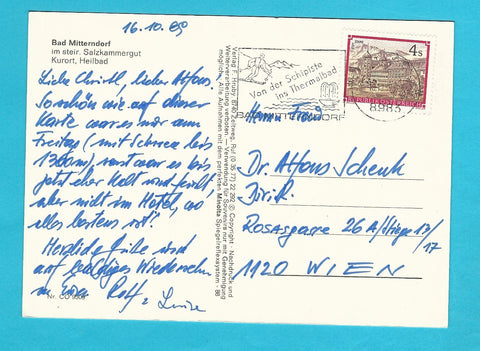 16.10.89
Bad Mitterndorf
im steir. Salzkammergut
Kurort, Heilbad
Liebe Christl, lieber Alfons.
So schön wie auf dieser
Karte war es nur am
Freitag (mit Schnee bis
1300m), sonst war es bis
jetzt eher kalt und feucht
aber nicht im Hotel, wo
alles bestens ist!
Herzliche Grüße und
auf baldiges Wiedersehn
Rolf
Verlag F. Hruby, 8740 Zeltweg, Ruf (0 35 77) 22 292 © Copyright - Nachdruck und
Weiterverarbeitung verboten. — Verwendung für Souvenirs nur mit Genehmigung
möglich. Alle Aufnahmen mit dem perfekten Mindita Spiegelreflexsystem - 86
Nr. CO
Von der Schipiste
ins Thermalbad
BAD MITTERNDORF
8983
4 S
REPUBLIK ÖSTERREICH
Herrn
Dr. Alfons Schenk
Dir. i. R.
Rosasgasse 26 A/Stiege 13/
17
1120 WIEN